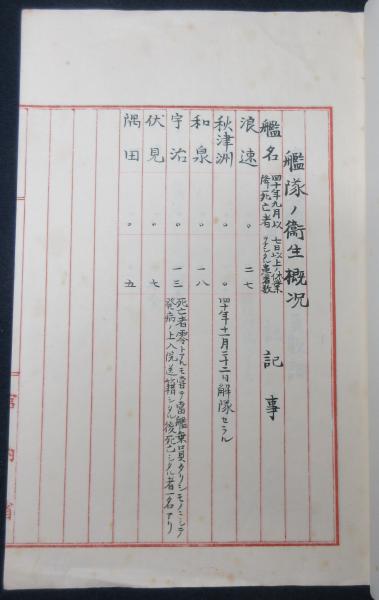 艦隊ノ衛生概況
艦名 四十年九月以降死亡者 七日以上ノ休業ヲナシタル患者数 記事
浪速 〃 二七
秋津洲 〃 〃 四十年十一月二十二日解隊セラル
和泉 〃 一八
宇治 〃 一三 死亡者零トアルモ曾テ當艦乗組員タリシモノニシテ
発病ノ上入院送籍シタル後死亡シタル者一名アリ
伏見 〃 七
隅田 〃 五
宮内省